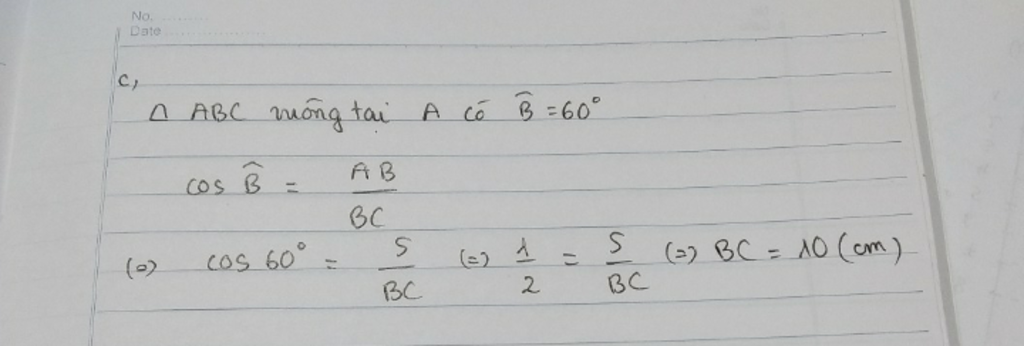 No. ..........
Date ....................
c,
Δ ABC vuông tại A có B̂ = 60°
cos B̂ = AB/BC
(=) cos 60° = 5/BC (=) 1/2 = 5/BC (=) BC = 10 (cm)